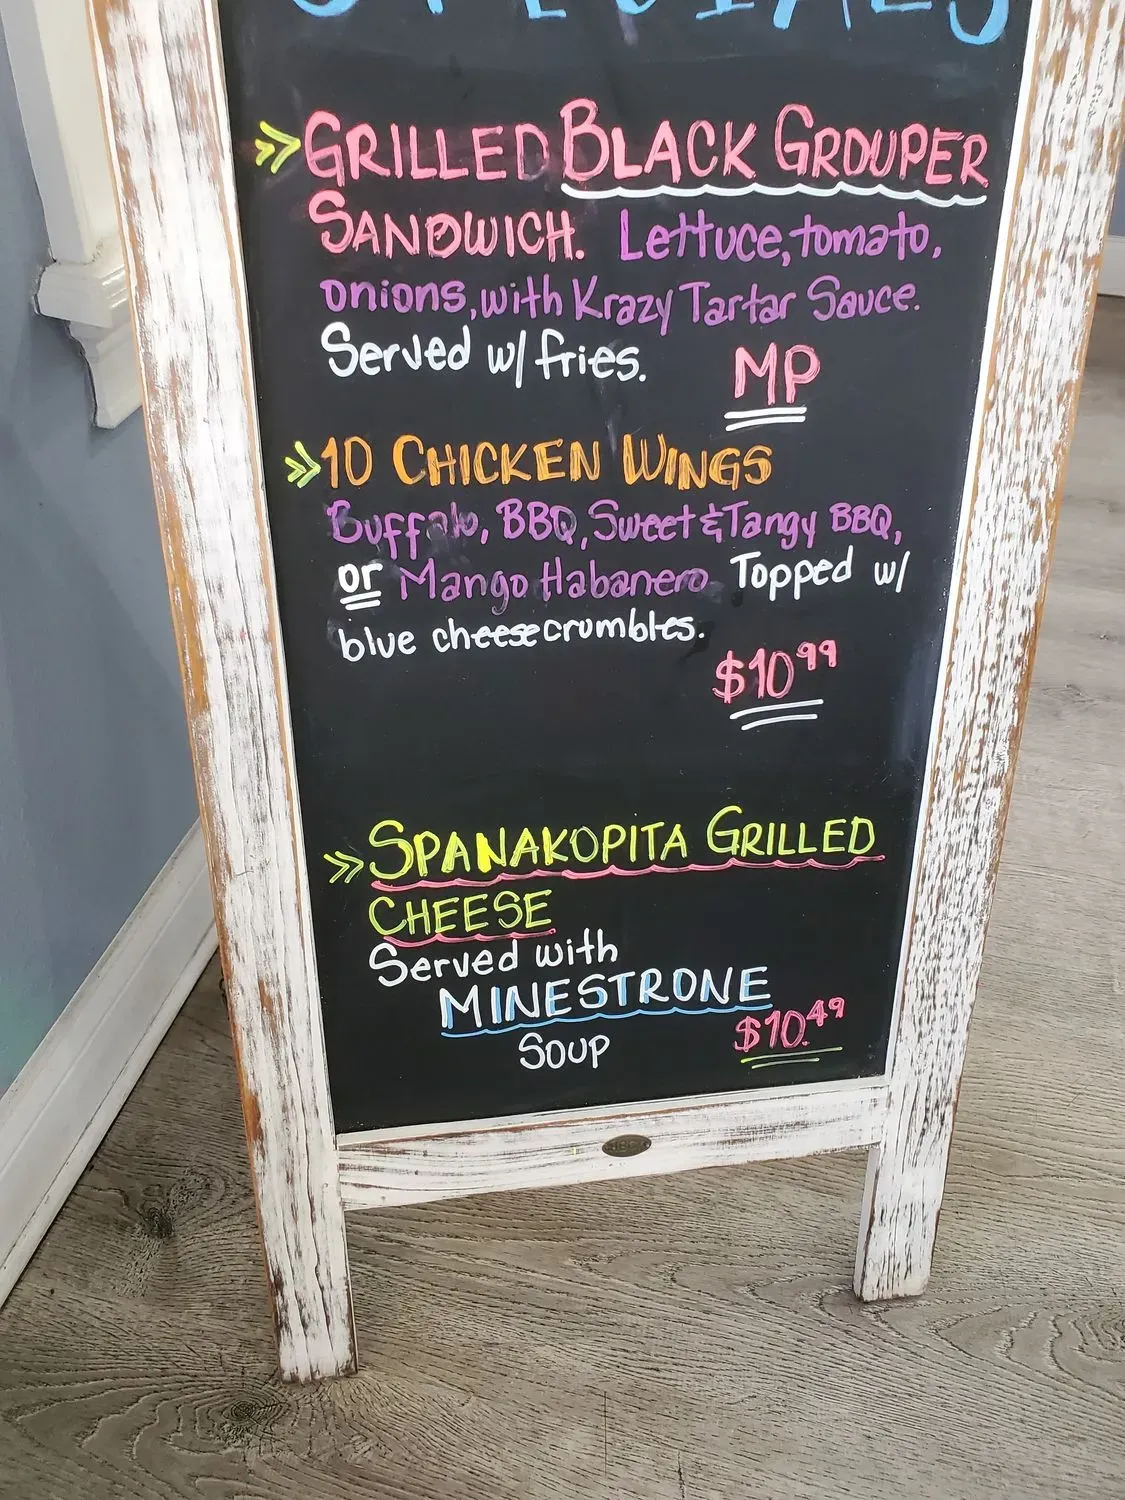 SPECIALS
» GRILLED BLACK GROUPER
SANDWICH. Lettuce, tomato,
onions, with Krazy Tartar Sauce.
Served w/ fries. MP
» 10 CHICKEN WINGS
Buffalo, BBQ, Sweet & Tangy BBQ,
or Mango Habanero Topped w/
blue cheese crumbles.
$10.99
» SPANAKOPITA GRILLED
CHEESE
Served with
MINESTRONE
SOUP $10.49